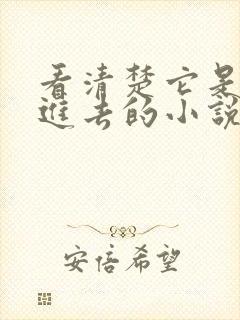 看清楚它是
進去的小說
安倍希望